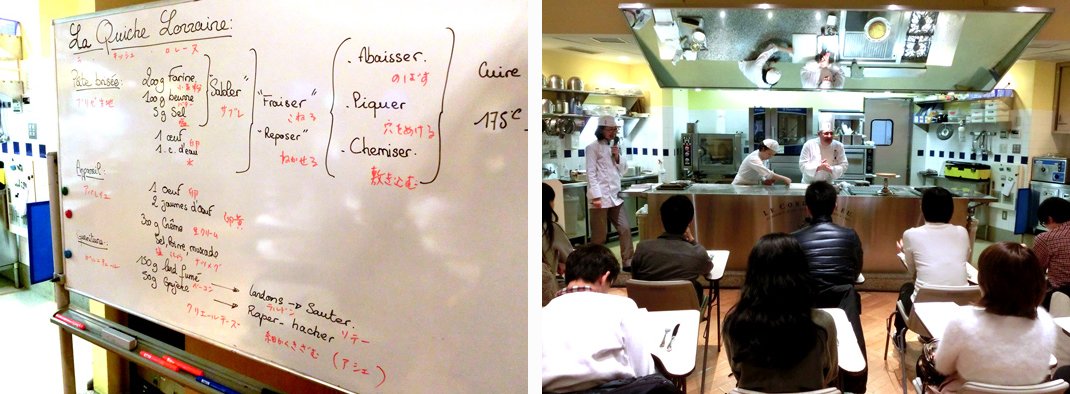 La Quiche Lorraine:
キッシュ ロレーヌ
Pâte brisée:
200g Farine
小麦粉
100g beurre
5g Sel
塩
1 œuf
卵
1. c. d'eau
水
Sabler
サブレ
"Fraiser"
こねる
"Reposer"
ねかせる
. Abaisser.
のばす
. Piquer
穴をあける
. Chemiser.
敷き込む
Cuire
175°C
Appareil:
アパレイユ
1 œuf
卵
2 jaunes d'œuf
卵黄
300g Crème
生クリーム
Sel, Poivre, muscade
塩 こしょう ナツメグ
Garniture:
ガルニチュール
150g lard fumé
ベーコン
50g Gruyère
グリュイエールチーズ
lardons → Sauter.
ラルドン
ソテー
Raper - hacher
細かくきざむ
(アシェ)
LE CORDON BLEU